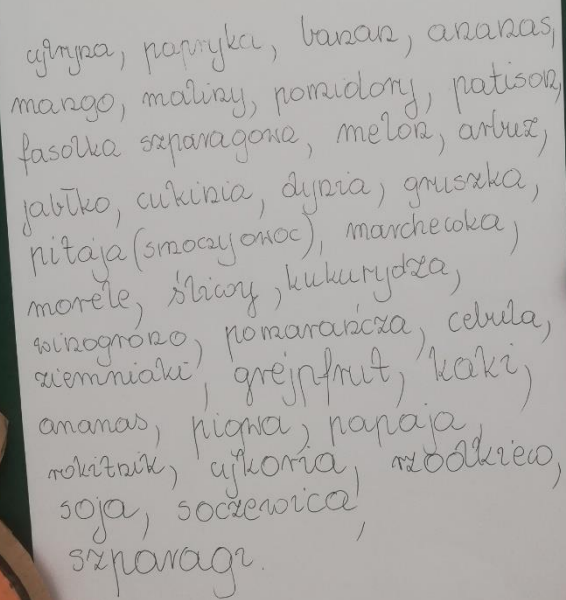 cytryna, papryka, banan, ananas,
mango, maliny, pomidory, patison,
fasolka szparagowa, melon, arbuz,
jabłko, cukinia, dynia, gruszka,
pitaja (smoczy owoc), marchewka,
morele, śliwy, kukurydza,
winogrono, pomarańcza, cebula,
ziemniaki, grejpfrut, kaki,
ananas, pigwa, papaja,
rokitnik, cykoria, rzodkiew,
soja, soczewica,
szparagi.